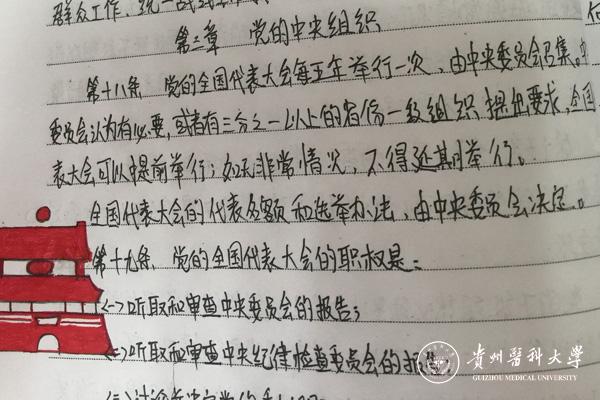 群众工作、统一战线工作
第三章 党的中央组织
第十八条 党的全国代表大会每五年举行一次，由中央委员会召集。中
委员会认为有必要，或者有三分之一以上的省份一级组织提出要求，全国
表大会可以提前举行；如无非常情况，不得延期举行。
全国代表大会的代表名额和选举办法，由中央委员会决定。
第十九条 党的全国代表大会的职权是：
(一)听取和审查中央委员会的报告；
(二)听取和审查中央纪律检查委员会的报告；
贵州医科大学
GUIZHOU MEDICAL UNIVERSITY